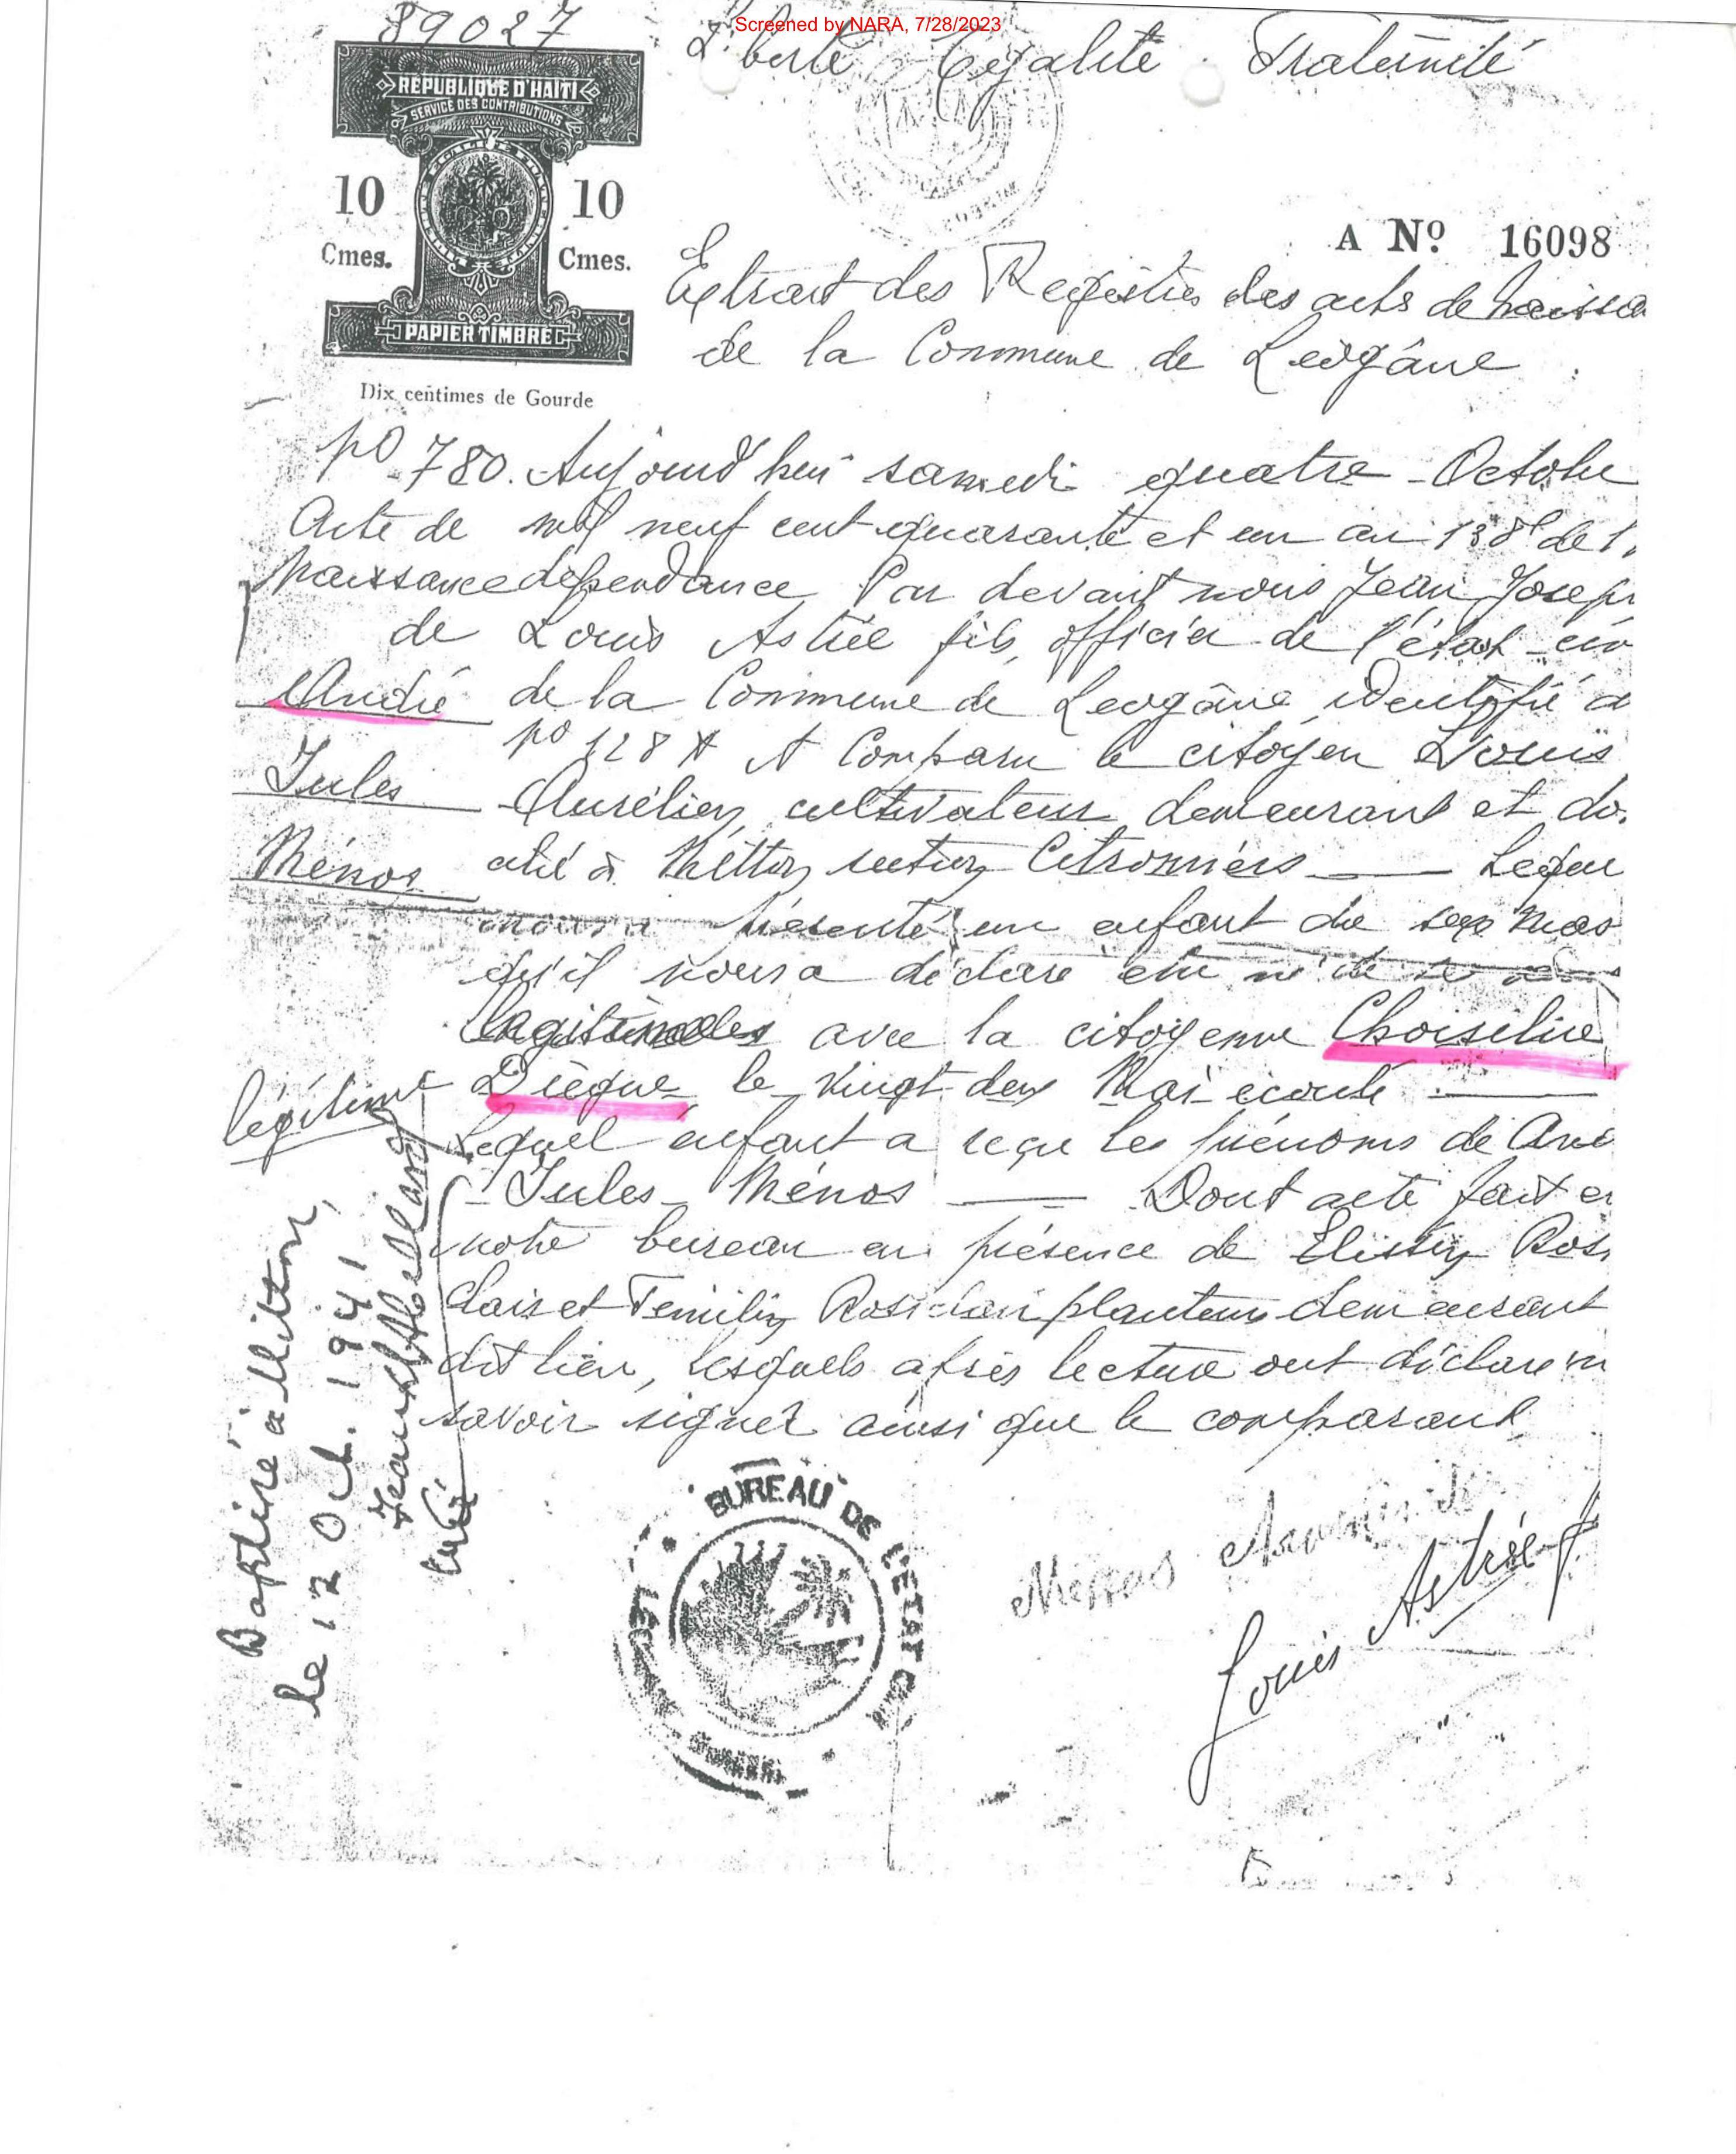 Screened by NARA, 7/28/2023
89027
Liberté Égalité Fraternité
REPUBLIQUE D'HAITI
SERVICE DES CONTRIBUTIONS
10 10
Cmes. Cmes.
PAPIER TIMBRE
Dix centimes de Gourde
A Nº 16098
Extrait des Registres des acts de naissa
de la Commune de Leogâne
No 780. Aujourd'hui samedi quatre Octobre
Acte de mil neuf cent quarante et un an 138e de l'
Naissance dépendance Par devant nous Jean Joseph
de Louis Astrée fils, officier de l'état civ
André de la Commune de Leogâne identifié a
No 128 A A Comparu le citoyen Louis
Jules Aurélien cultivateur demeurant et do.
Ménos cilié à section Citronniers Lequel
nous a présenté un enfant du sexe mas
qu'il nous a déclaré être né de
avec la citoyenne Choiseline
légitime Dièque le vingt deux Mai écoulé
Lequel enfant a reçu les prénoms de And
Jules Ménos Dont acte fait en
notre bureau en présence de Rosi
clair et Rosiclair planteurs demeurant
dit lieu, lesquels après lecture ont déclaré
savoir signer ainsi que le comparant
Baptisé à Mitton,
le 12 Oct. 1941
Curé
BUREAU DE L'ETAT CIVIL
Louis Astrée f.